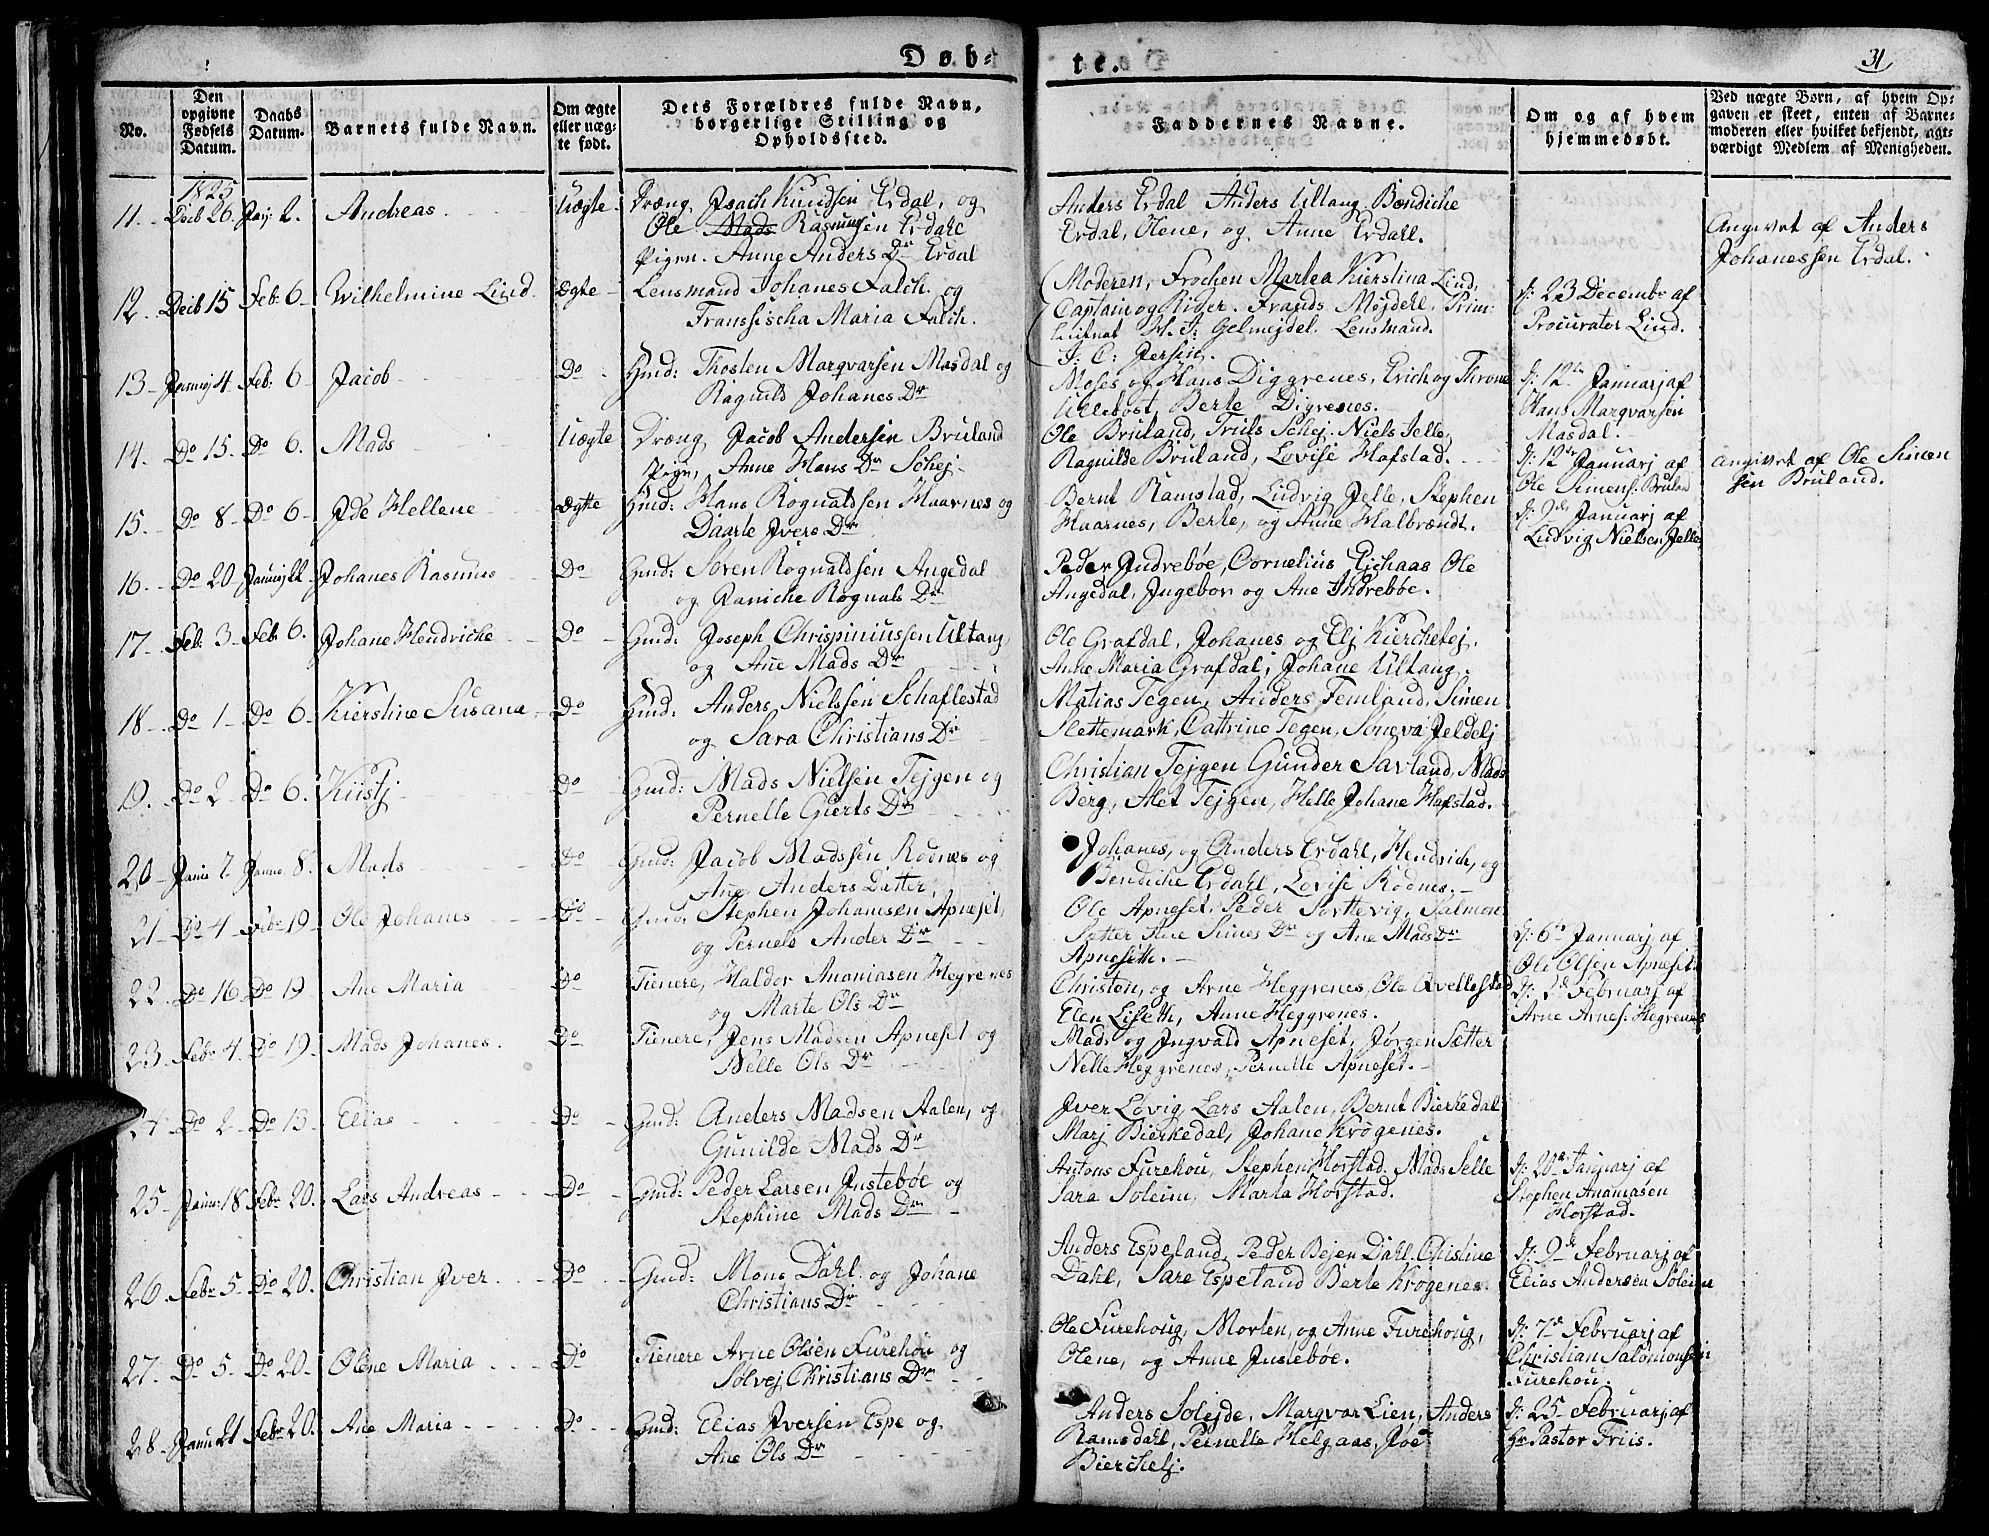 Døb-
te.
31
No.
Den opgivne Fødsels Datum.
Daabs Datum.
Barnets fulde Navn.
Om ægte eller uægte født.
Dets Forældres fulde Navn, borgerlige Stilling og Opholdssted.
Faddernes Navne.
Om og af hvem hjemmedøbt.
Ved uægte Børn, af hvem Opgaven er skeet, enten af Barnemoderen eller hvilket bekjendt, agtværdigt Medlem af Menigheden.
1825
11. Decb 26. Janj. 2. Andreas Uægte. Dræng Isach Knudsen Erdal, og
Ole Mads Rasmussen Erdahl
Pigen. Anne Anders Dr Erdal
Anders Erdal Anders Ultang. Bendiche
Erdal, Olene, og Anne Erdahl.
Angivet af Anders
Johanessen Erdal.
12. Decb 15 Feb. 6 Wilhelmine Lind Ægte Lensmand Johanes Falch. og
Fransischa Maria Falch.
Moderen, Frøchen Martea Kierstina Lind,
Captain og Rider. Frands Mejdehl, Prim:
Leutnat H. J: Gelmejdel. Lensmand.
J: C: Jersin.
d: 23 Decembr af
Procurater Lind.
13 Januarj 4 Feb. 6 Jacob Do Gmd: Thosten Marqvarsen Masdal og
Ragnild Johanes Dr
Moses og Hans Diggrenes, Erich og Throne
Ullebost, Berte Digrenes.
d: 12te Januarj af
Hans Marqvarsen
Masdal.
14. Do 15. Do 6. Mads Uægte Dræng Jacob Andersen Bruland
Pogn, Anne Hans Dr Schej
Ole Bruland, Truls Schej. Niels Jelle,
Ragnilde Bruland, Lovise Hafstad.
d: 12te Januarj af
Ole Simens: Bruland
angivet af Ole Simen
sen Bruland.
15. Do 8 Do 6 Ide Hellene Ægtte Gmd: Hans Rognaldsen Haarnes og
Daarte Ivers Dr
Bernt Ramstad, Ludvig Jelle, Stephen
Haarnes, Berte, og Anne Halbrændt.
d: 9de Januarj af
Ludvig Nielsen Jelle
16. Do 20 Johanes Rasmus Do Gmd: Søren Rognaldsen Angedal
og Janiche Rognals Dr
Peder Indrebøe, Cornelius Ejchaas Ole
Angedal, Ingebor og Ane Indrebøe.
17 Feb. 3 Feb. 6. Johane Hendriche Do Gmd: Joseph Chrispiniussen Ultang
og Ane Mads Dr
Ole Grafdal, Johanes og Elj Kierchetej,
Anne Maria Grafdal, Johane Ultang.
18 Do 1 Do 6 Kierstine Susana Do Gmd: Anders Nielsen Schaflestad
og Sara Christians Dr
Matias Tegen, Anders Femland, Simen
Slettemark, Cattrine Tegen, Søneva Jeldelj
19. Do 2 Do 6. Kiistj Do Gmd: Mads Nielsen Tejgen og
Pernelle Gierts Dr
Christian Tejgen Gunder Sarland, Mads
Berg, Alet Tejgen, Helle Johane Hafstad.
20 Janu 7. Janua. 8. Mads Do Gmd: Jacob Madssen Rodnes og
Ane Anders Datter,
Johanes, og Anders Erdahl, Hendrich, og
Bendiche Erdahl, Lovise Rodnes.
21 Do 4 Febr 19 Ole Johanes Do Gmd: Stephen Johanesen Apneset,
og Pernele Ander Dr
Ole Apneset, Peder Sorttevig, Salmon
Setter Ane Simes Dr og Ane Mads Dr
Apnesetn.
d: 6te Januarj af
Ole Olsen Apneset.
22 Do 16 Do 19 Ane Maria Do Tienere, Haldor Ananiasen Hegrenes
og Marte Ols Dr
Christen, og Arne Heggrenes, Ole Qvellestad
Elen Liseth, Anne Heggrenes.
Februarj af
Arne Arnes: Hegrenes
23 Febr 4. Do 19 Mads Johanes. Do Tienere, Jens Madsen Apneset og
Nelle Ols Dr
Mads og Ingvald Apneset, Jørgen Sætter
Nelle Heggrenes, Pernelle Apneset.
24 Do 2 Do 13 Elias Do Gmd: Anders Madsen Aalen, og
Gunilde Mads Dr
Iver Løvig, Lars Aalen, Bernt Bierkedal
Marj Bierkedal, Johane Krogenes.
25 Janu: 18 Febr 20. Lars Andreas Do Gmd: Peder Larsen Justebøe og
Stephine Mads Dr
Antons Furehou, Stephen Horstad. Mads Selle
Sara Soleim, Marta Horstad.
d: 20de Januarj af
Stephen Ananiasen
Horstad.
26 Febr 5 Do 20. Christian Iver Do Gmd: Mons Dahl og Johane
Christians Dr
Anders Espeland, Peder Bejen Dahl. Christine
Dahl, Sare Espeland Berte Krogenes.
d: 9de Februarj af
Elias Andersen Soleim
27. Do 5 Do 20. Olene Maria Do Tienere Arne Olsen Furehou og
Sølvej Christians Dr
Ole Furehoug, Morten, og Anne Furehoug,
Olene, og Anne Justebøe.
d: 7de Februarj af
Christian Salomonsen
Furehou.
28 Janu 21 Febr 20. Ane Maria Do Gmd: Elias Iversen Espe og
Ane Ols Dr
Anders Solejde, Marqvar Lien, Anders
Ramsdahl, Pernelle Helgaas, Joe
Bierchelj.
d: 25 Februarj af
Hr Pastor Friis.